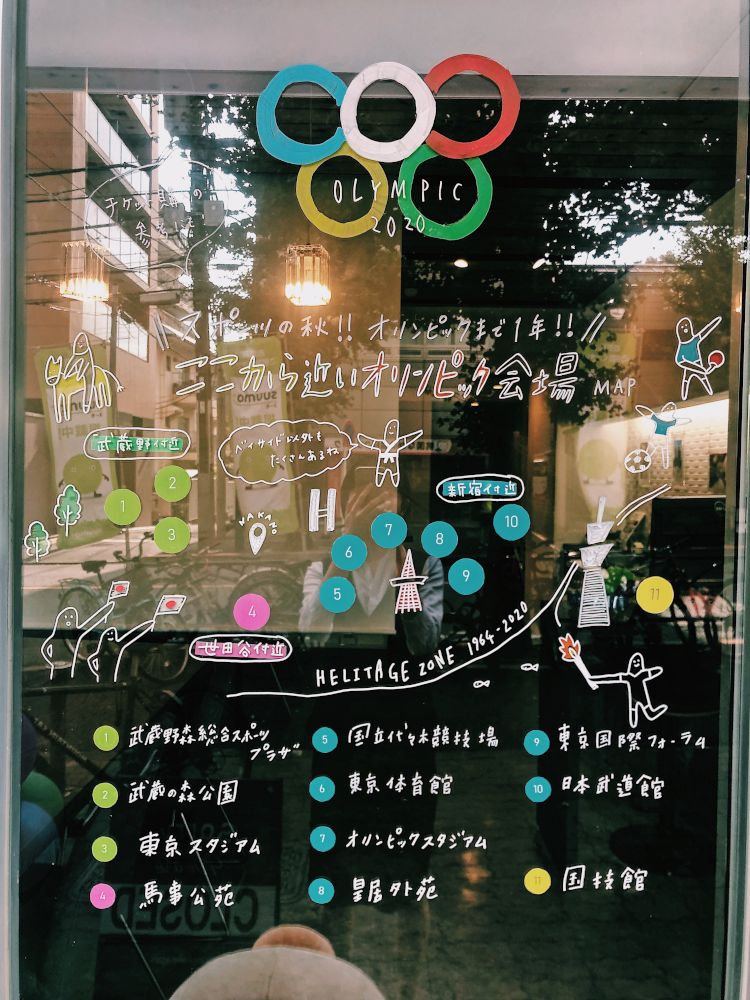 OLYMPIC
2020
\\スポーツの秋!! オリンピックまで1年!!//
ここから近いオリンピック会場 MAP
武蔵野付近
ベイサイド以外も
たくさんあるね
新宿付近
1
2
3
WAKAZO
H
4
5
6
7
8
9
10
11
世田谷付近
HELITAGE ZONE 1964-2020
1 武蔵野森総合スポーツ
プラザ
2 武蔵の森公園
3 東京スタジアム
4 馬事公苑
5 国立代々木競技場
6 東京体育館
7 オリンピックスタジアム
8 皇居外苑
9 東京国際フォーラム
10 日本武道館
11 国技館
CLOSED